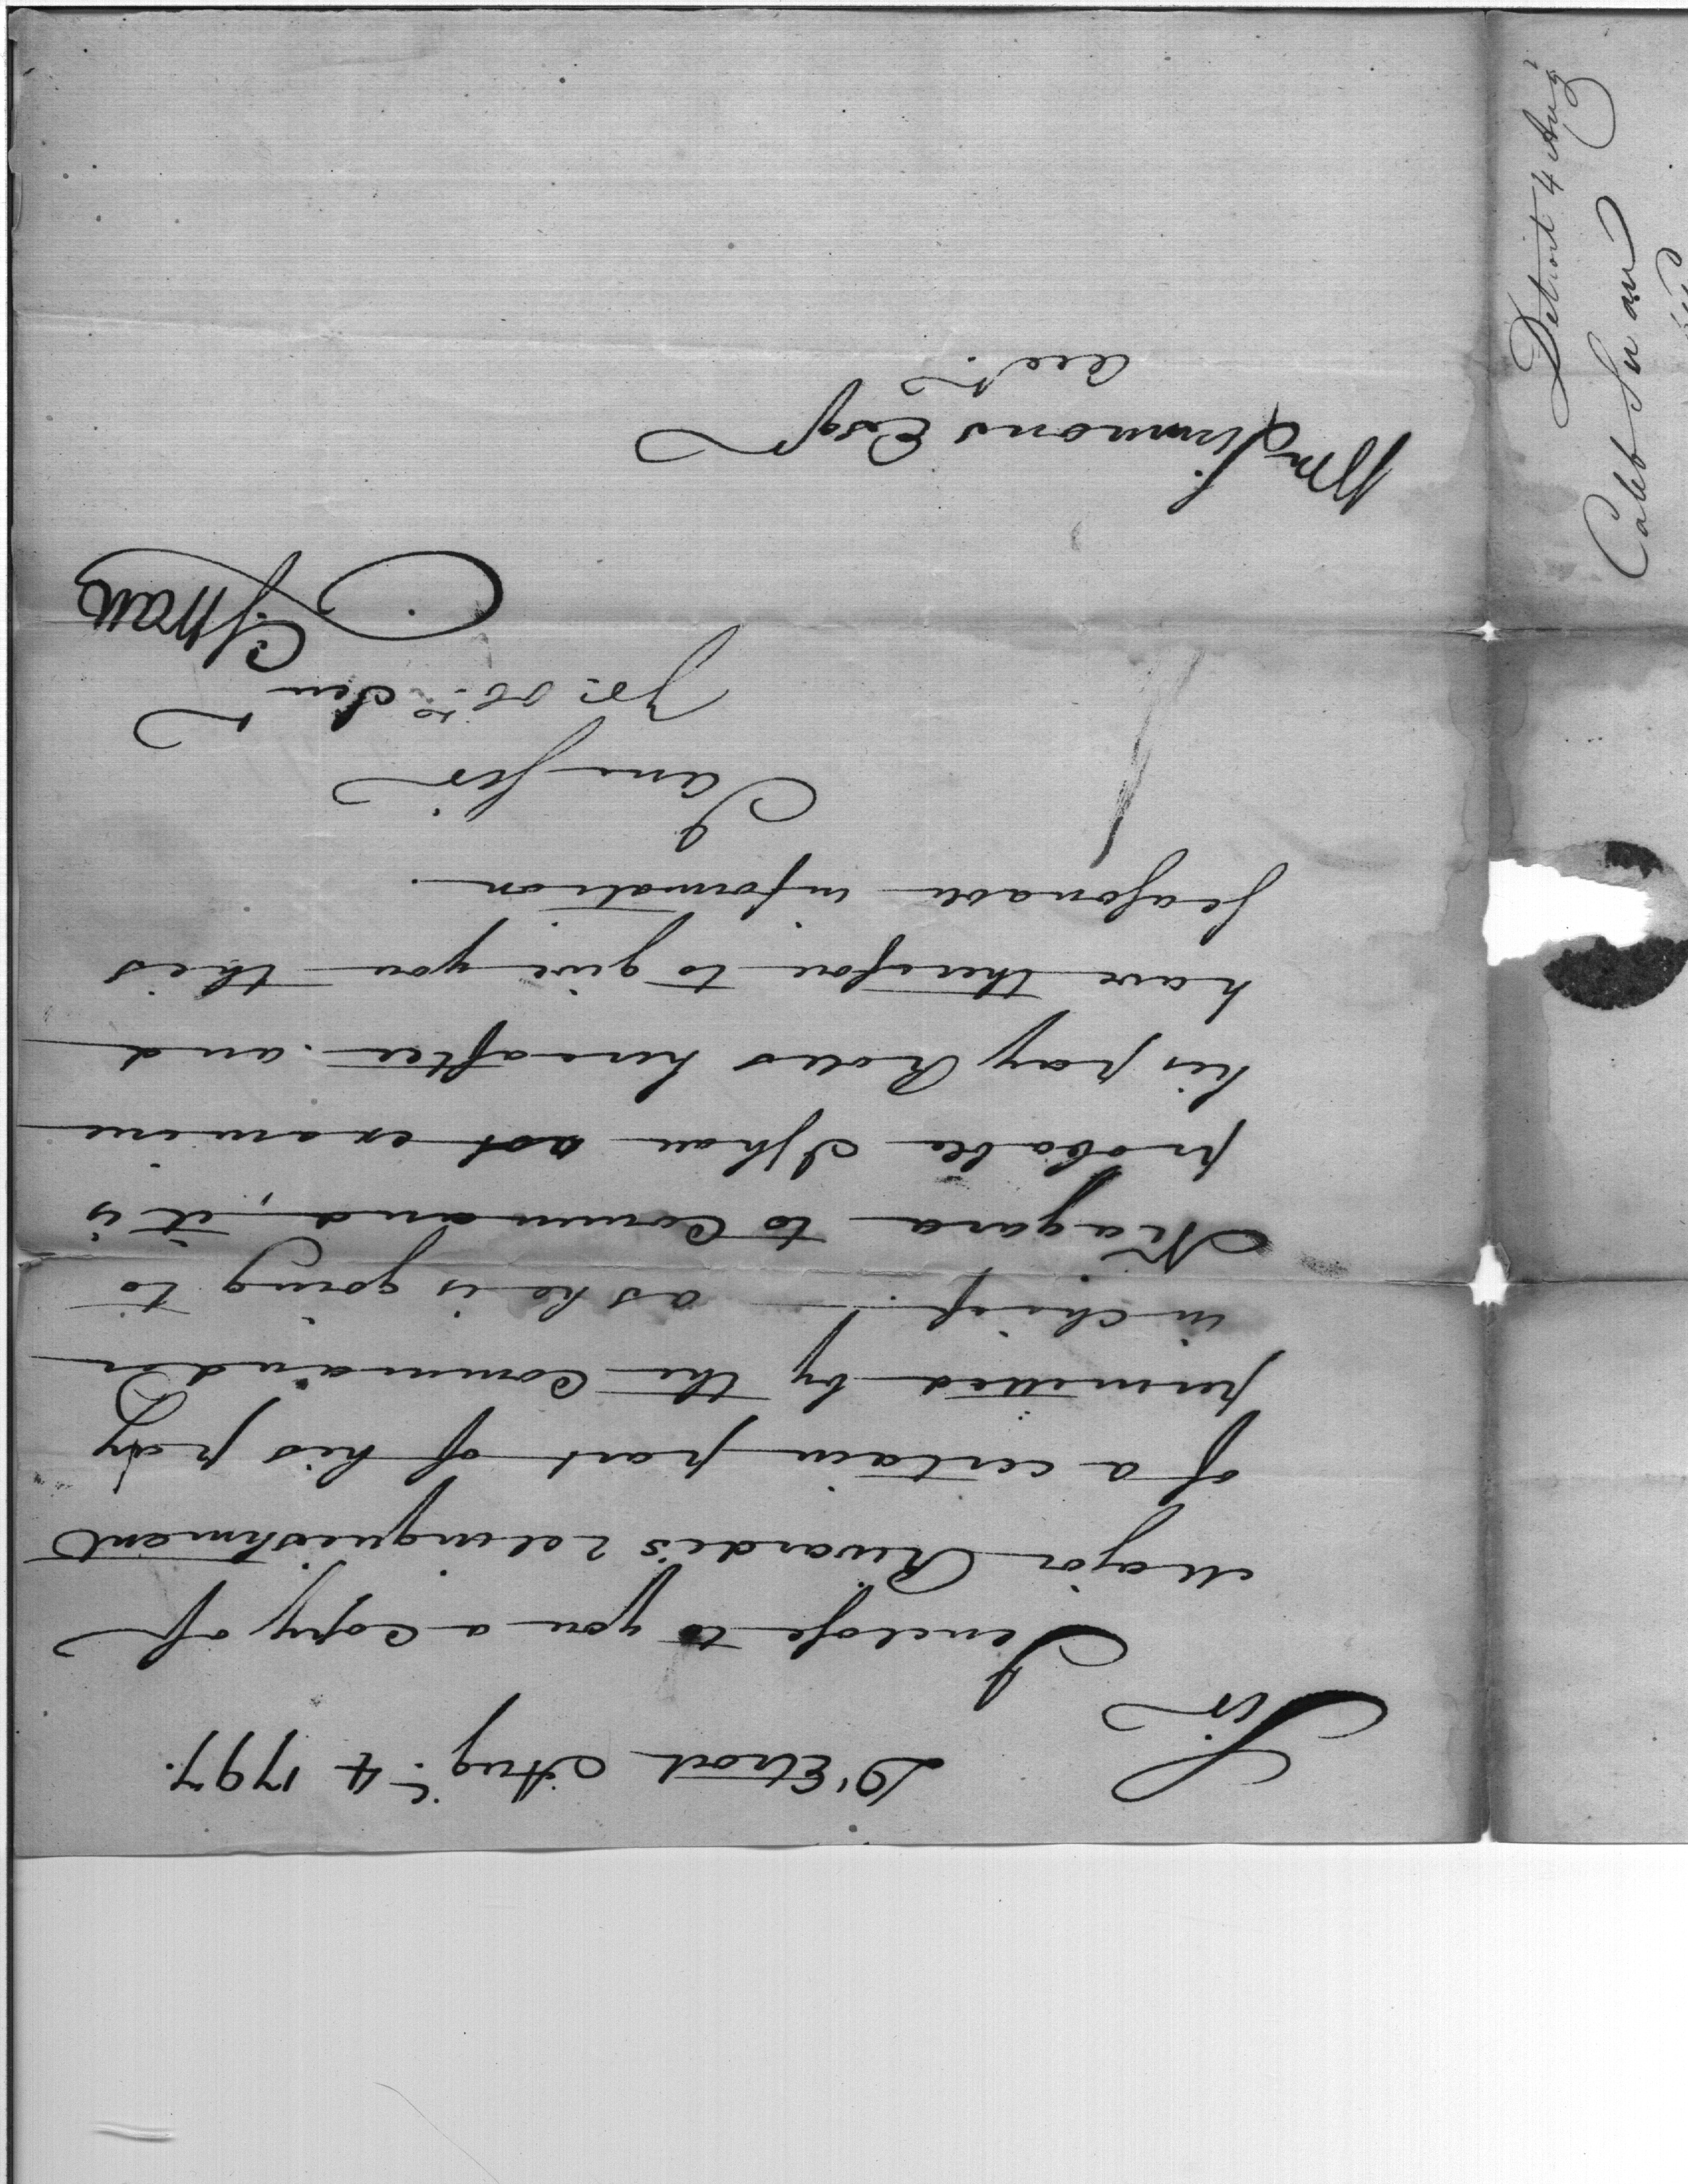 D'Etroit Augt. 4 1797.
Sir
I enclose to you a copy of
Major Rivardi's relinquishment
of a certain part of his pay
permitted by the Commander
in chief. — as he is going to
Niagara to Command, it is
probable I shall not examine
his pay Rolls hereafter and
have therefore to give you this
seasonable information.
I am sir
yr. ob. Ser
C. Swan
Wm Simmons Esqr
Acct.
Detroit 4 Aug
Caleb Swan